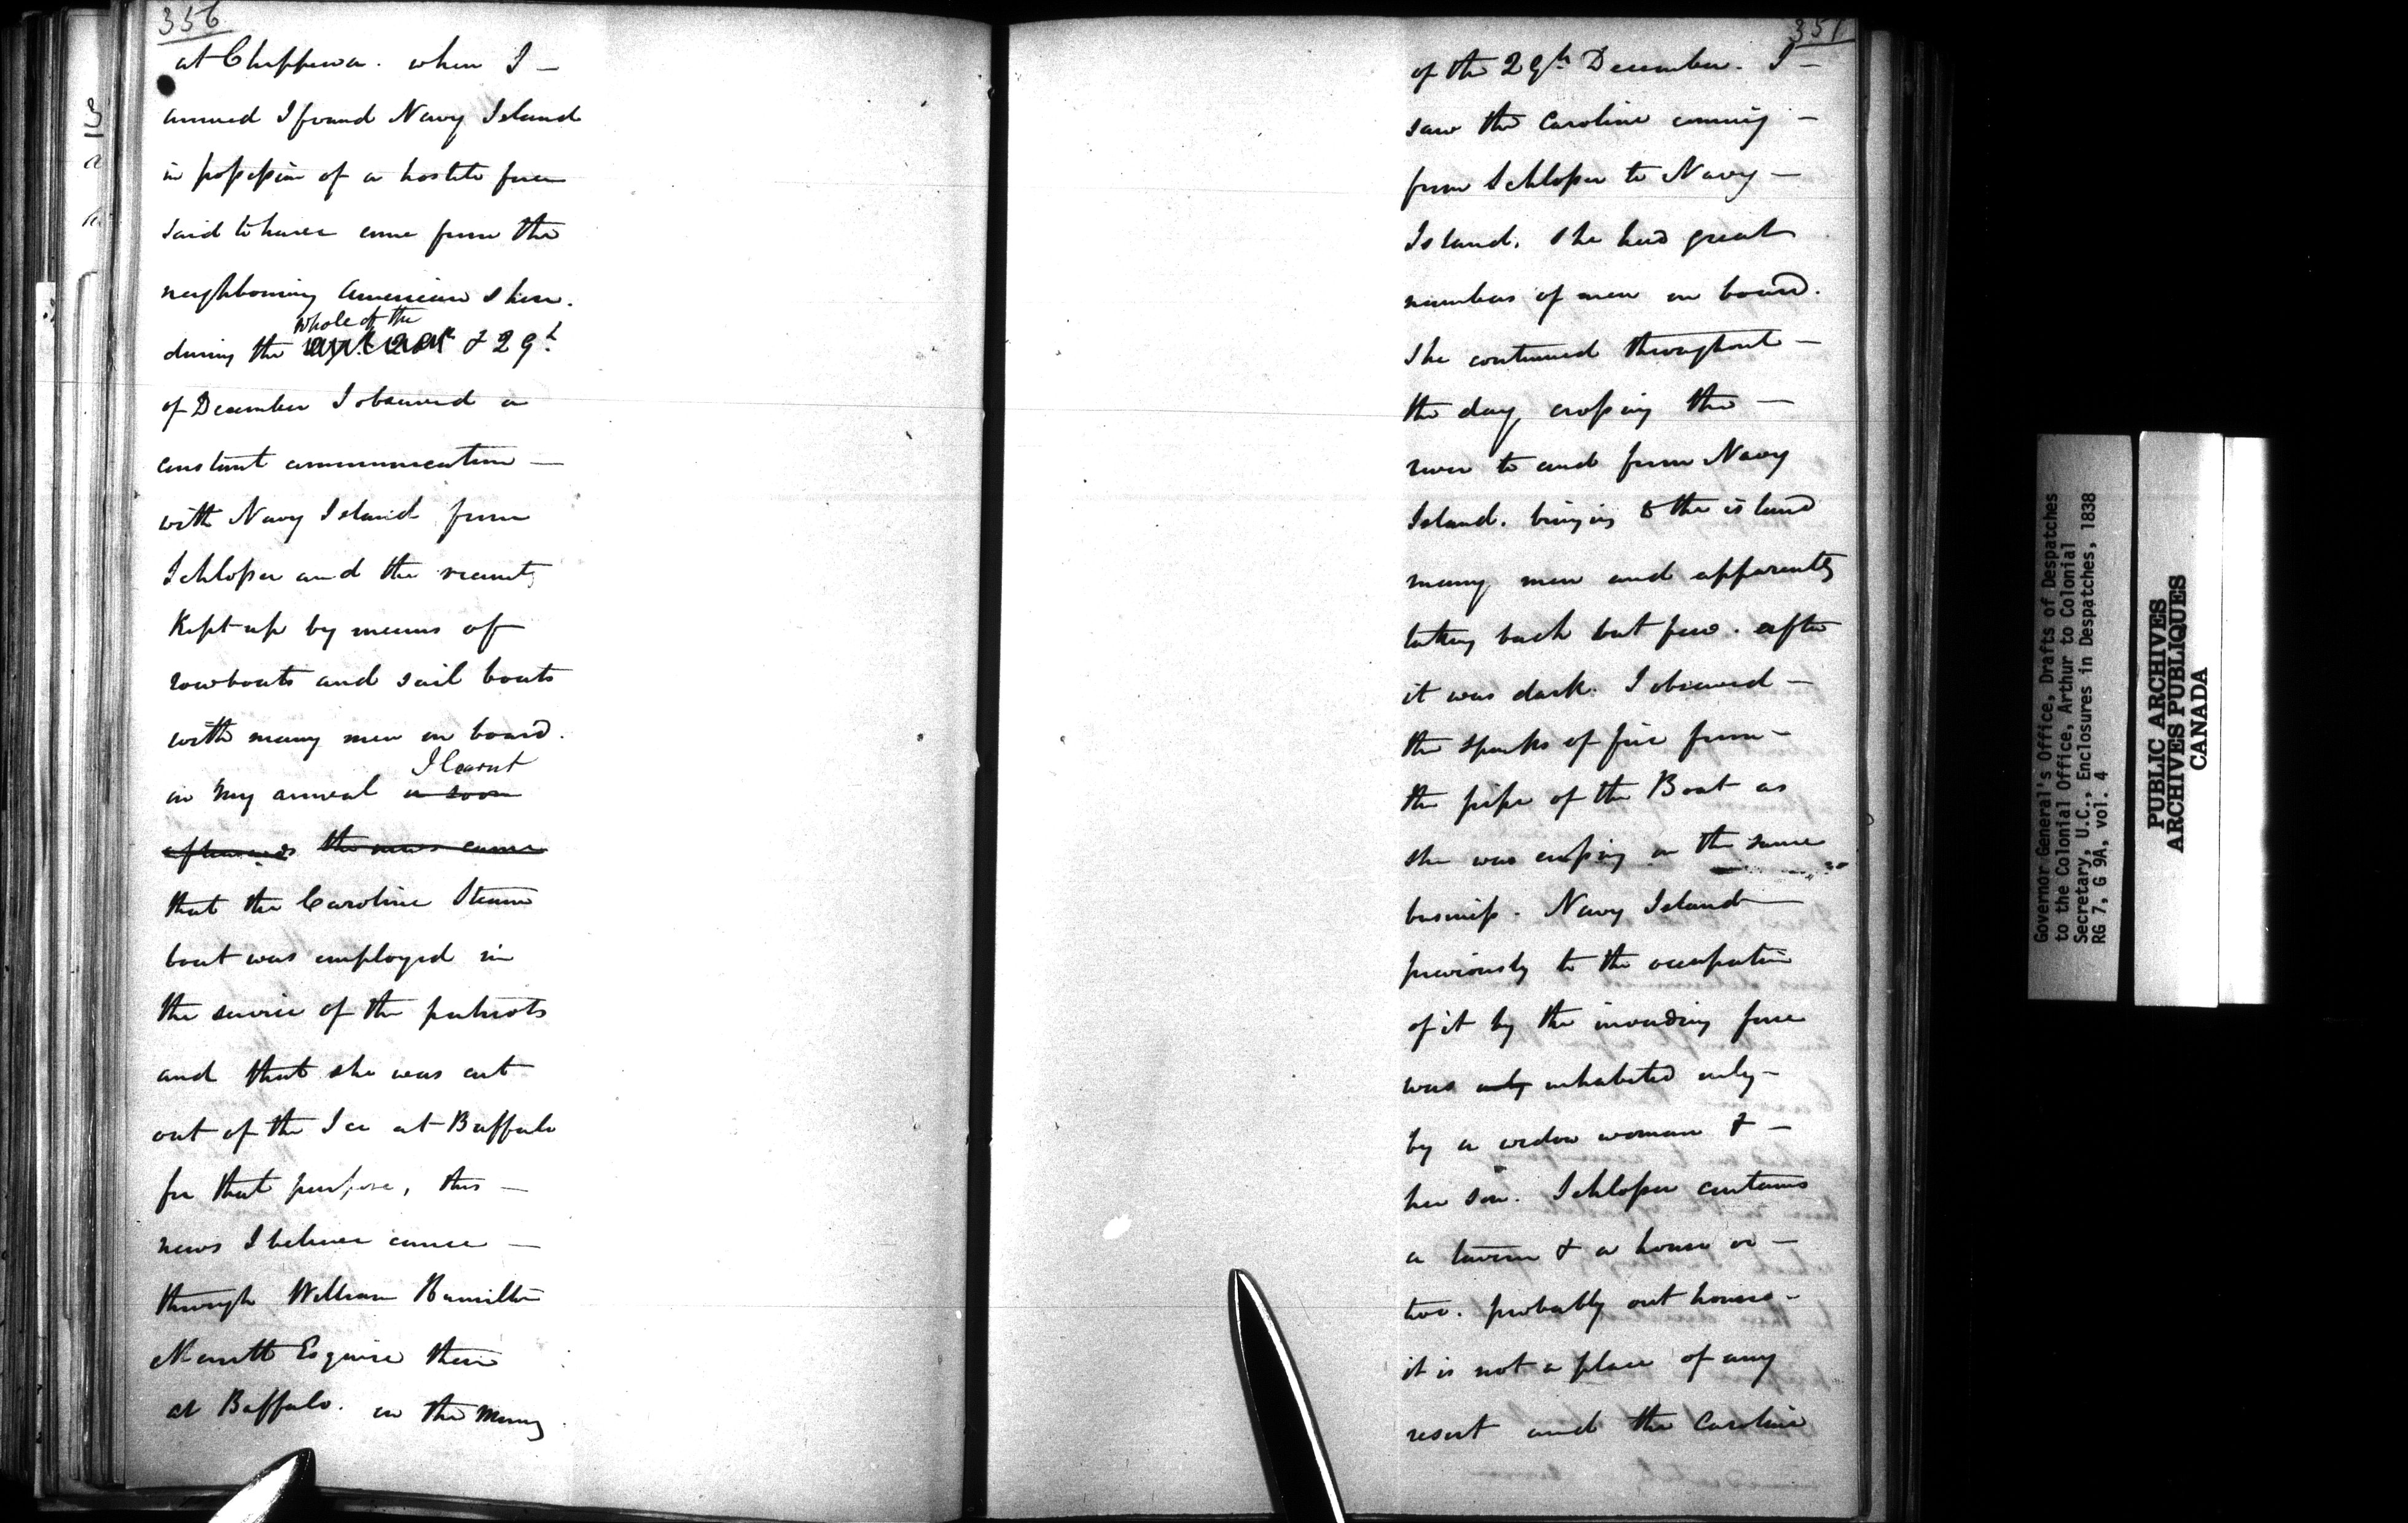 356
at Chippewa. when I —
arrived I found Navy Island
in possession of a hostile force
said to have come from the
neighbouring American shore.
whole of the
during the & 29th
of December I observed a
constant communication —
with Navy Island from
Schlosser and the vicinity
Kept up by means of
rowboats and sail boats
with many men on board.
I learnt
on my arrival or soon
afterwards the news came
that the Caroline Steam
boat was employed in
the service of the patriots
and that she was cut
out of the Ice at Buffalo
for that purpose, this —
news I believe came —
through William Hamilton
Merritt Esquire then
at Buffalo. on the morng
357
of the 29th December. I —
saw the Caroline coming —
from Schlosser to Navy —
Island. she had great
numbers of men on board.
She continued throughout —
the day crossing the —
river to and from Navy
Island. bringing to the island
many men and apparently
taking back but few. after
it was dark. I observed —
the sparks of fire from —
the pipe of the Boat as
she was crossing on the same
business. Navy Island
previously to the occupation
of it by the invading force
was only inhabited only —
by a widow woman & —
her son. Schlosser contains
a tavern & a house or —
two. probably out houses —
it is not a place of any
resort and the Caroline
Governor General's Office, Drafts of Despatches
to the Colonial Office, Arthur to Colonial
Secretary, U.C., Enclosures in Despatches, 1838
RG 7, G 9A, vol. 4
PUBLIC ARCHIVES
ARCHIVES PUBLIQUES
CANADA